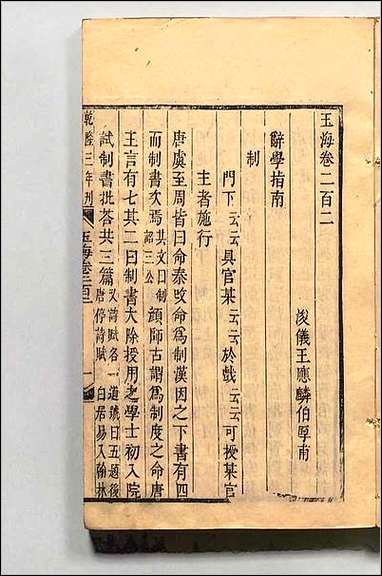 玉海卷二百二
浚儀王應麟伯厚甫
辭學指南
制
門下云云具官某云云於戲云云可授某官
主者施行
唐虞至周皆曰命秦改命爲制漢因之下書有四
而制書次焉其文曰制詔三公顔師古謂爲制度之命唐
王言有七其二曰制書大除授用之學士初入院
試制書批荅共三篇又詩賦各一道號曰五題後唐停詩賦 白居易入翰林
乾隆三年刊
玉海卷二百二
一